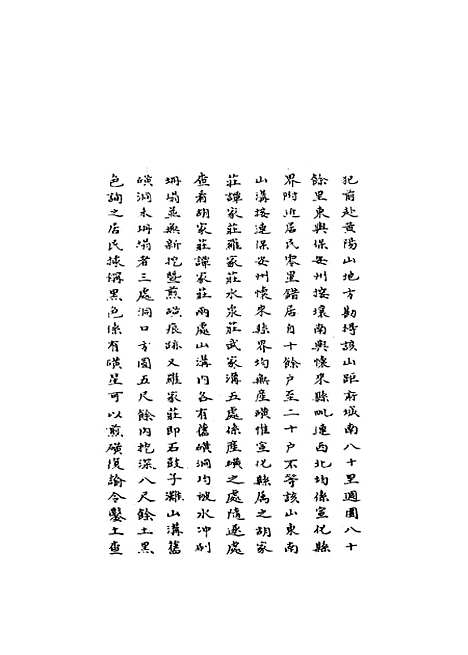 犯前赴黄陽山地方勘得該山距府城南八十里週圍八十
餘里東與保安州接壤南與懷來縣毗連西北均係宣化縣
界附近居民零星錯居自十餘户至二十户不等該山東南
山溝接連保安州懷來縣界均無產磺惟宣化縣屬之胡家
莊譚家莊雅家莊水泉莊武家溝五處係產磺之處隨逐處
查看胡家莊譚家莊兩處山溝内各有舊磺洞均被水冲刷
坍塌並無新挖暨煎磺痕跡又雅家莊即石鼓子灘山溝舊
磺洞未坍塌者三處洞口方圓五尺餘内挖深八尺餘土黑
色詢之居民據稱黑色係有磺星可以煎磺復諭令鑿土查